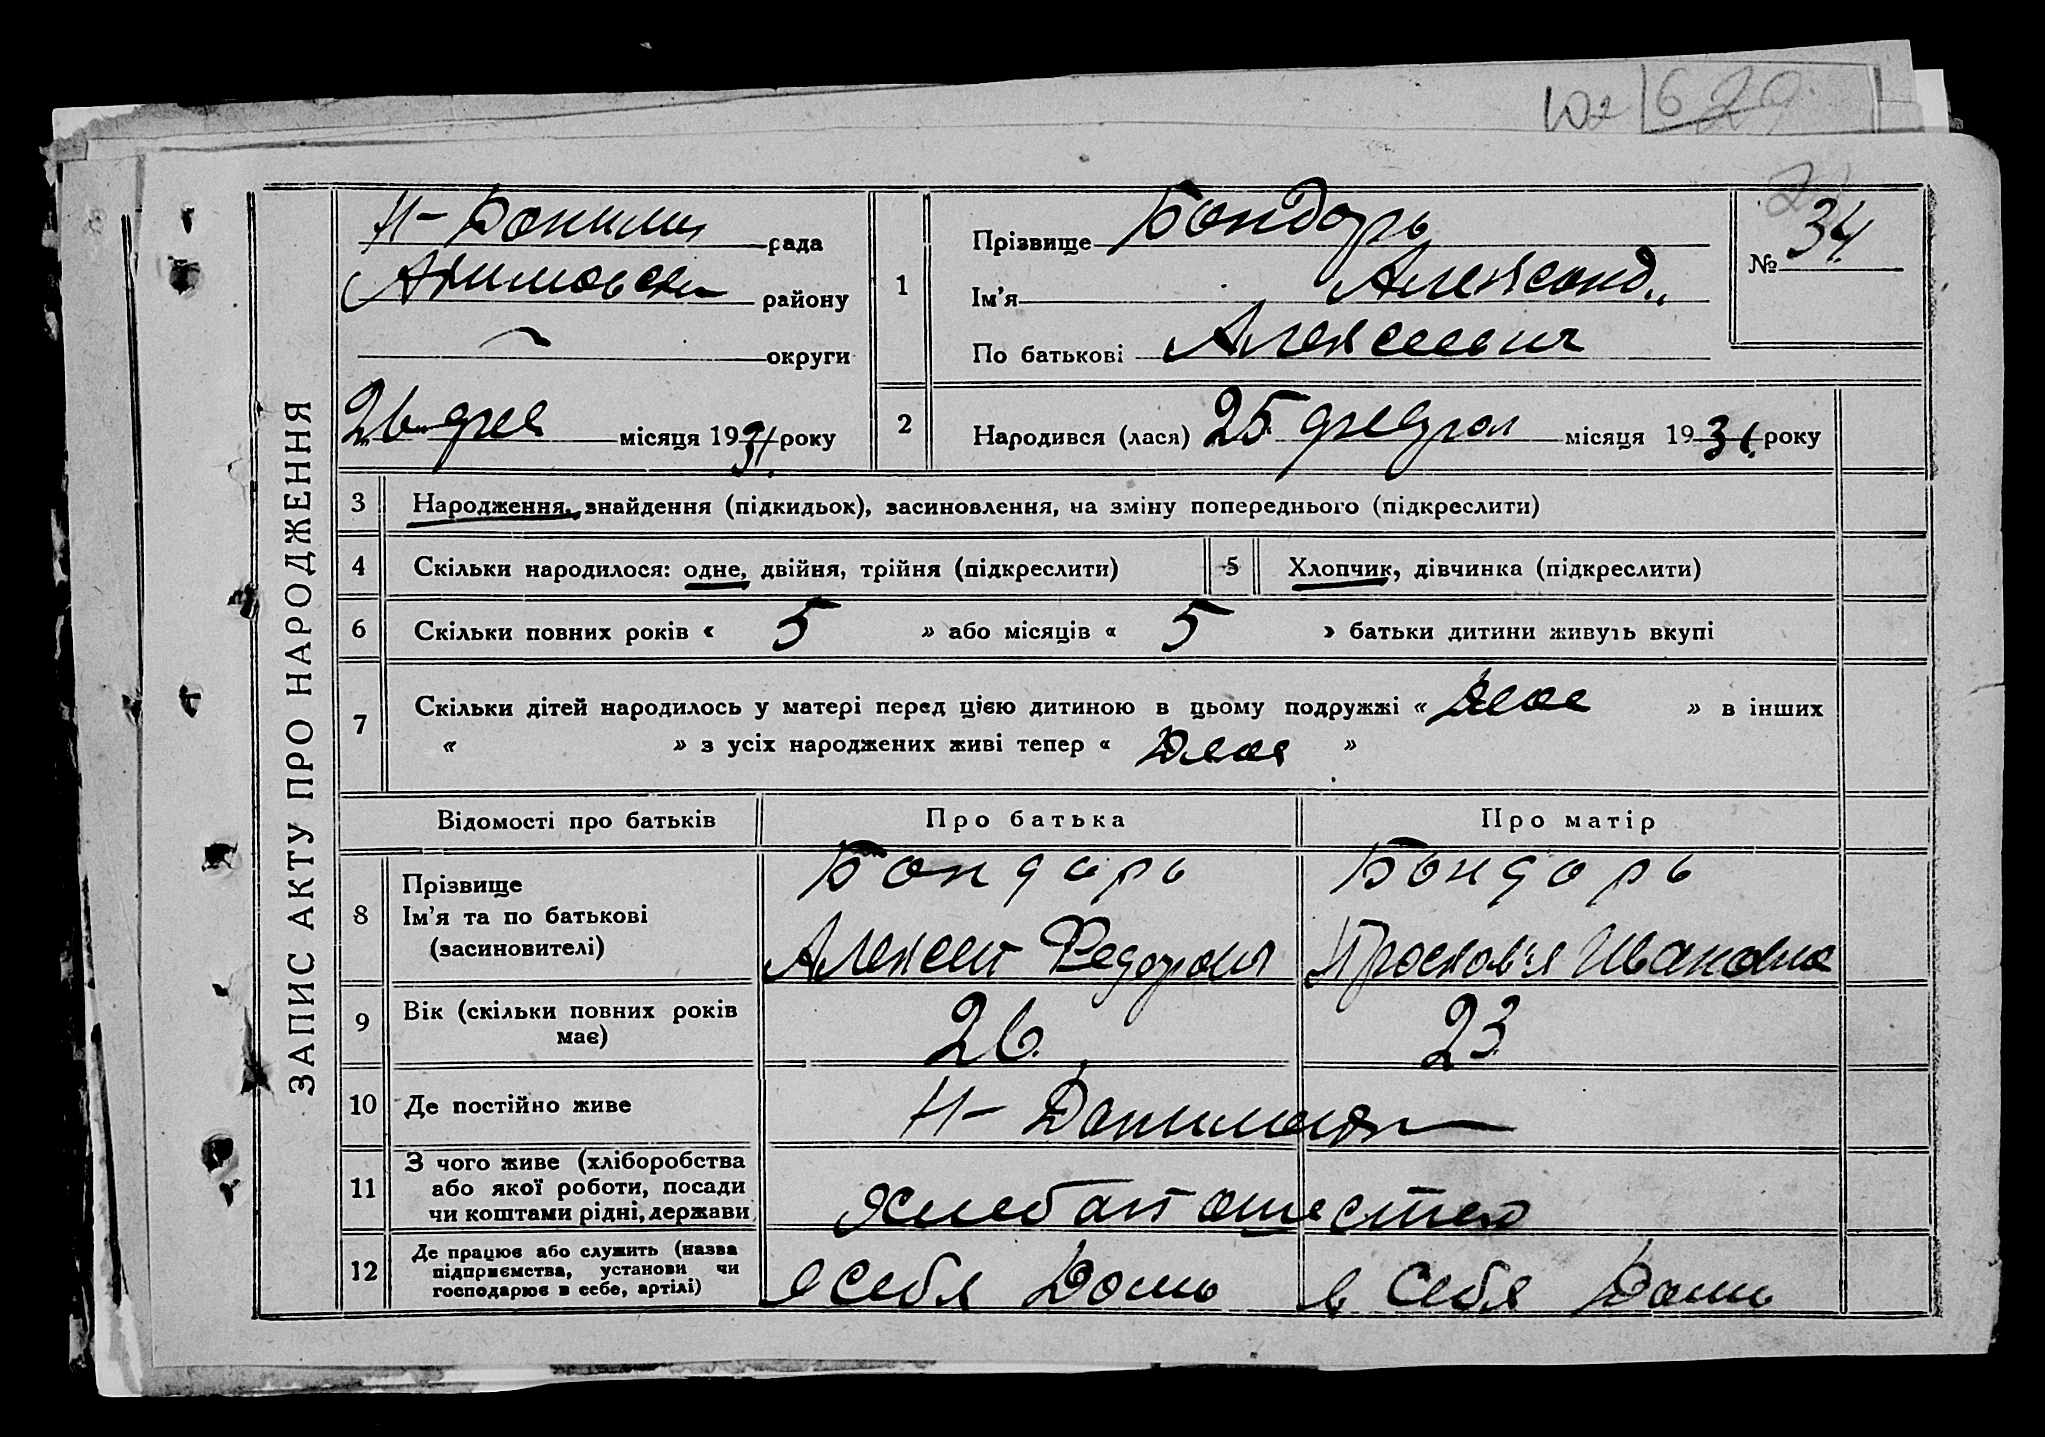 629
34
ЗАПИС АКТУ ПРО НАРОДЖЕННЯ
Н- рада
району
округи
26 фев місяця 1931 року
1
Прізвище Бондарь
Ім'я Александ.
По батькові Алексеевич
№ 34
2
Народився (лася) 25 феврал місяця 1931. року
3 Народження, знайдення (підкидьок), засиновлення, на зміну попереднього (підкреслити)
4 Скільки народилося: одне, двійня, трійня (підкреслити) 5 Хлопчик, дівчинка (підкреслити)
6 Скільки повних років « 5 » або місяців « 5 » батьки дитини живуть вкупі
7 Скільки дітей народилось у матері перед цією дитиною в цьому подружжі « Двое » в інших
« » з усіх народжених живі тепер « Двое »
Відомості про батьків Про батька Про матір
8 Прізвище Бондарь Бондарь
Ім'я та по батькові
(засиновителі) Алексей Федоров Просковья Ивановна
9 Вік (скільки повних років має) 26. 23
10 Де постійно живе Н-
11 З чого живе (хліборобства
або якої роботи, посади
чи коштами рідні, держави
12 Де працює або служить (назва
підприємства, установи чи
господарює в себе, артілі)
себя Дома в себя Дома